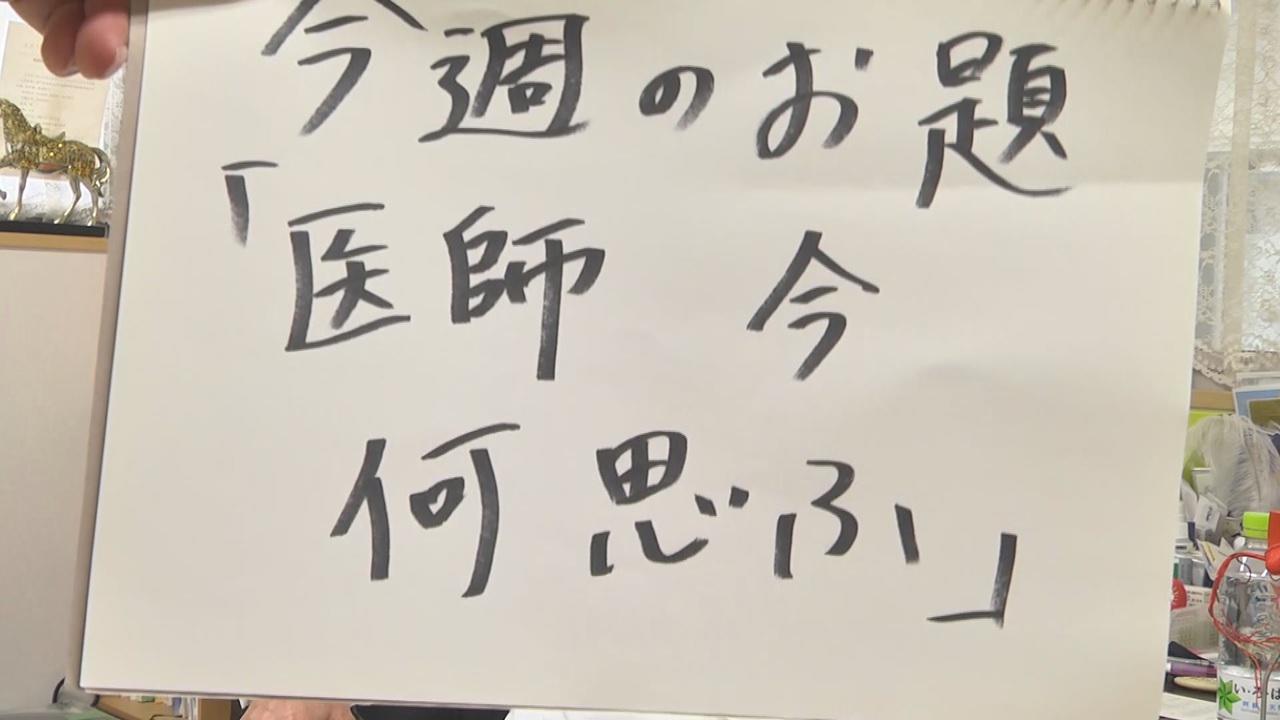 今週のお題
「医師 今
何思ふ」
い・ろ・は